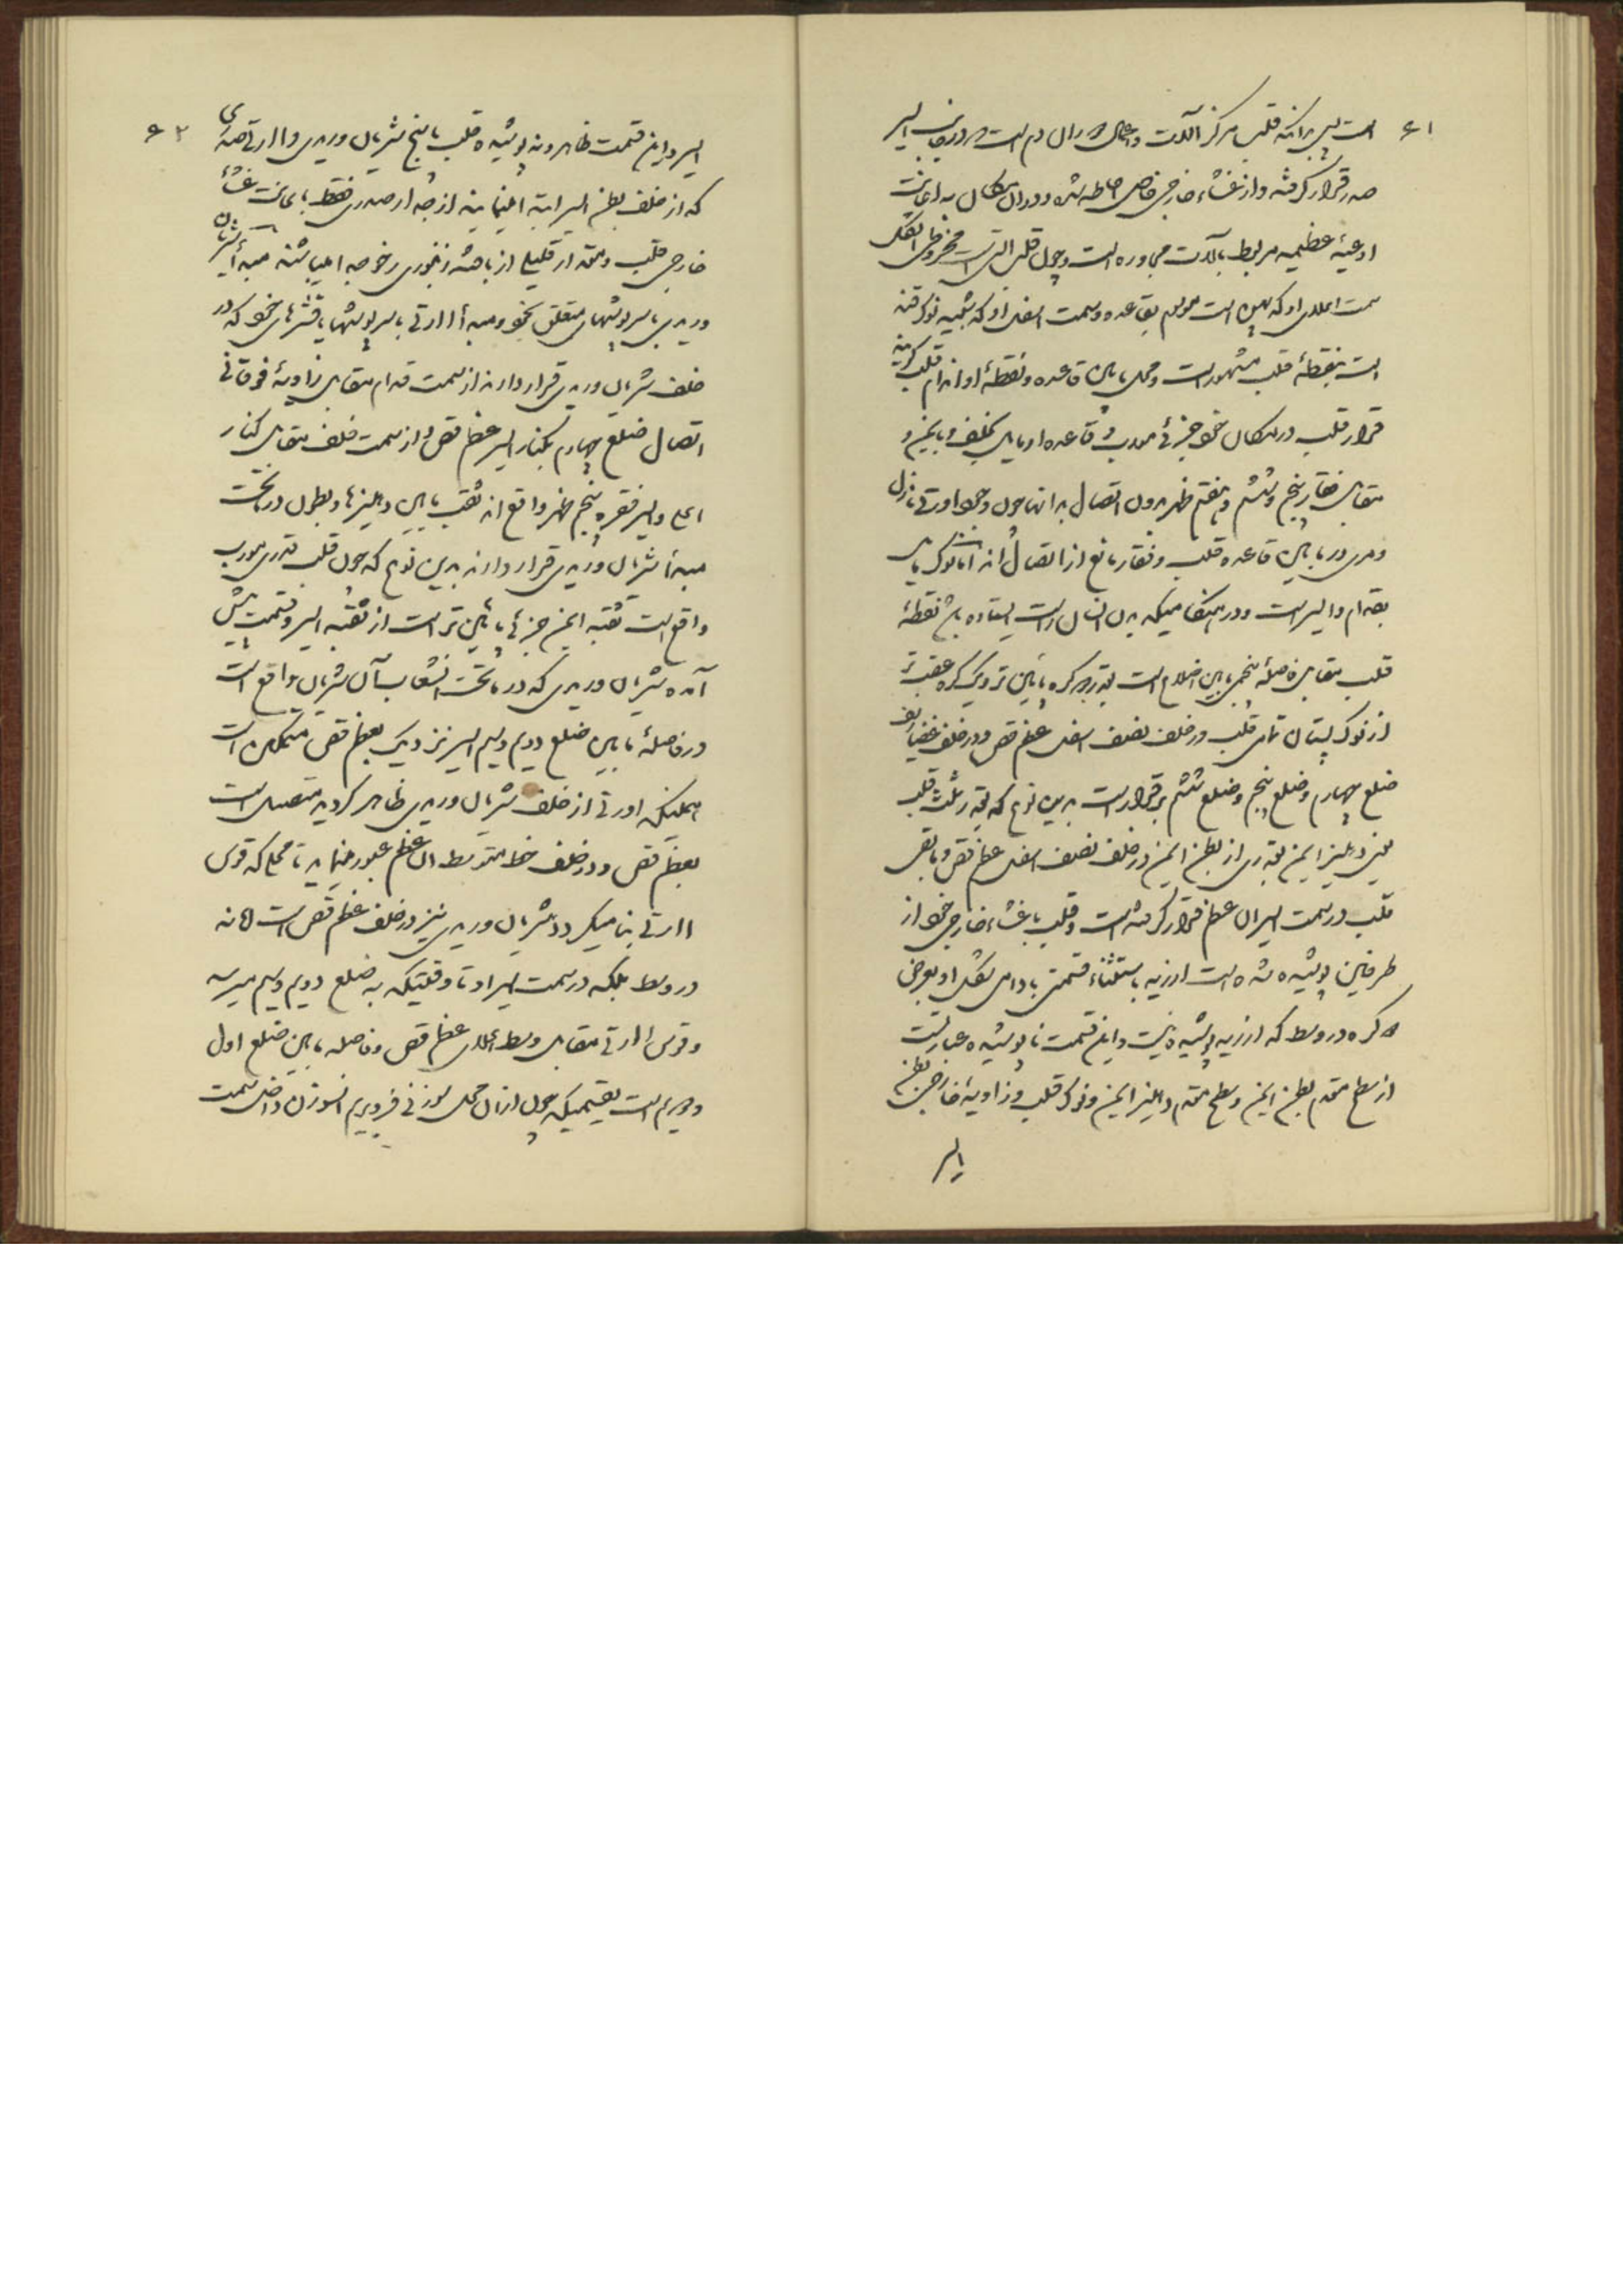 ۶۱
است پس بدانکه قلب مرکز آلات و اعمال دوران دم است و در جانب ایسر
صدر قرار گرفته و از غشاء خارجی خاص احاطه شده و در آن مکان به اعانت
اوعیهٔ عظیمه مربوط بآلات مجاوره است و چون قلب آلتی است مخروطی الشکل
سمت اعلای او که پهن است موسوم بقاعده و سمت اسفل او که شبیه بنوک تنه
است بنقطهٔ قلب مشهور است و محل مابین قاعده و نقطهٔ او را جرم قلب گویند
قرار قلب در مکان خود جزئی مورب و قاعده او مایل بخلف و بایمن و
مقابل فقار پنجم و ششم و هفتم ظهر بدون اتصال بدانها چون وجود اورتی نازل
و مری در مابین قاعده قلب و فقار مانع از اتصال اند اما نوک مایل
بقدام و ایسر است و در هنگامیکه بدن انسان راست ایستاده باشد نقطهٔ
قلب مقابل فاصلهٔ پنجمی مابین اضلاع است بقدر دو گره پائین تر و یک گره عقب تر
از نوک پستان تمامی قلب در خلف نصف اسفل عظم قص و در خلف غضاریف
ضلع چهارم و ضلع پنجم و ضلع ششم برقرار است بدین نوع که بقدر ثلث قلب
یعنی دهلیز ایمن بقدری از بطن ایمن در خلف نصف اسفل عظم قص و مابقی
قلب در سمت ایسر آن عظم قرار گرفته است و قلب با غشاء خارجی خود از
طرفین پوشیده شده است از ریه باستثناء قسمتی بادامی شکل او بعرض
دو گره در وسط که از ریه پوشیده نیست و این قسمت نا پوشیده عبارتست
از سطح مقدم بطن ایمن و سطح مقدم دهلیز ایمن و نوک قلب و زاویهٔ خارجی بطن
ایسر
۶۲
ایسر و این قسمت ظاهر و نا پوشیده قلب با بیخ شریان وریدی و اارتی صدری
که از خلف بطن ایسر ابتدا مینمایند از جدار صدری فقط باعانت غشاء
خارجی قلب و مقدار قلیلی از بافته زنبوری رخو جدا میباشند مبدأ شریان
وریدی با سرپوشهای متعلق بخود و مبدأ اارتی با سرپوشها یا قشرهای خود که در
خلف شریان وریدی قرار دارند از سمت قدام مقابل زاویهٔ فوقانی
اتصال ضلع چهارم بکنار ایسر عظم قص و از سمت خلف مقابل کنار
اعلی و ایسر فقره پنجم ظهر واقع اند ثقب مابین دهلیزها و بطون در تحت
مبدأ شریان وریدی قرار دارند بدین نوع که چون قلب قدری مورب
واقع است ثقبه ایمن جزئی پائین تر است از ثقبه ایسر و قسمت پیش
آمده شریان وریدی که در تحت انشعاب آن شریان واقع است
در فاصلهٔ مابین ضلع دویم و سیم ایسر نزدیک بعظم قص متمکن است
همینکه اورتی از خلف شریان وریدی ظاهر گردید متصل است
بعظم قص و در خلف خط متوسط آن عظم عبور مینماید تا محلی که قوس
اارتی بنا میگردد و شریان وریدی نیز در خلف عظم قص است اما نه
در وسط بلکه در سمت ایسر او تا وقتیکه به ضلع دویم و سیم میرسد
و قوس اارتی مقابل وسط اعلای عظم قص و فاصله مابین ضلع اول
و دویم است بقسمیکه چون از آن محل سوزنی فرو بریم آنسوزن داخل سمت